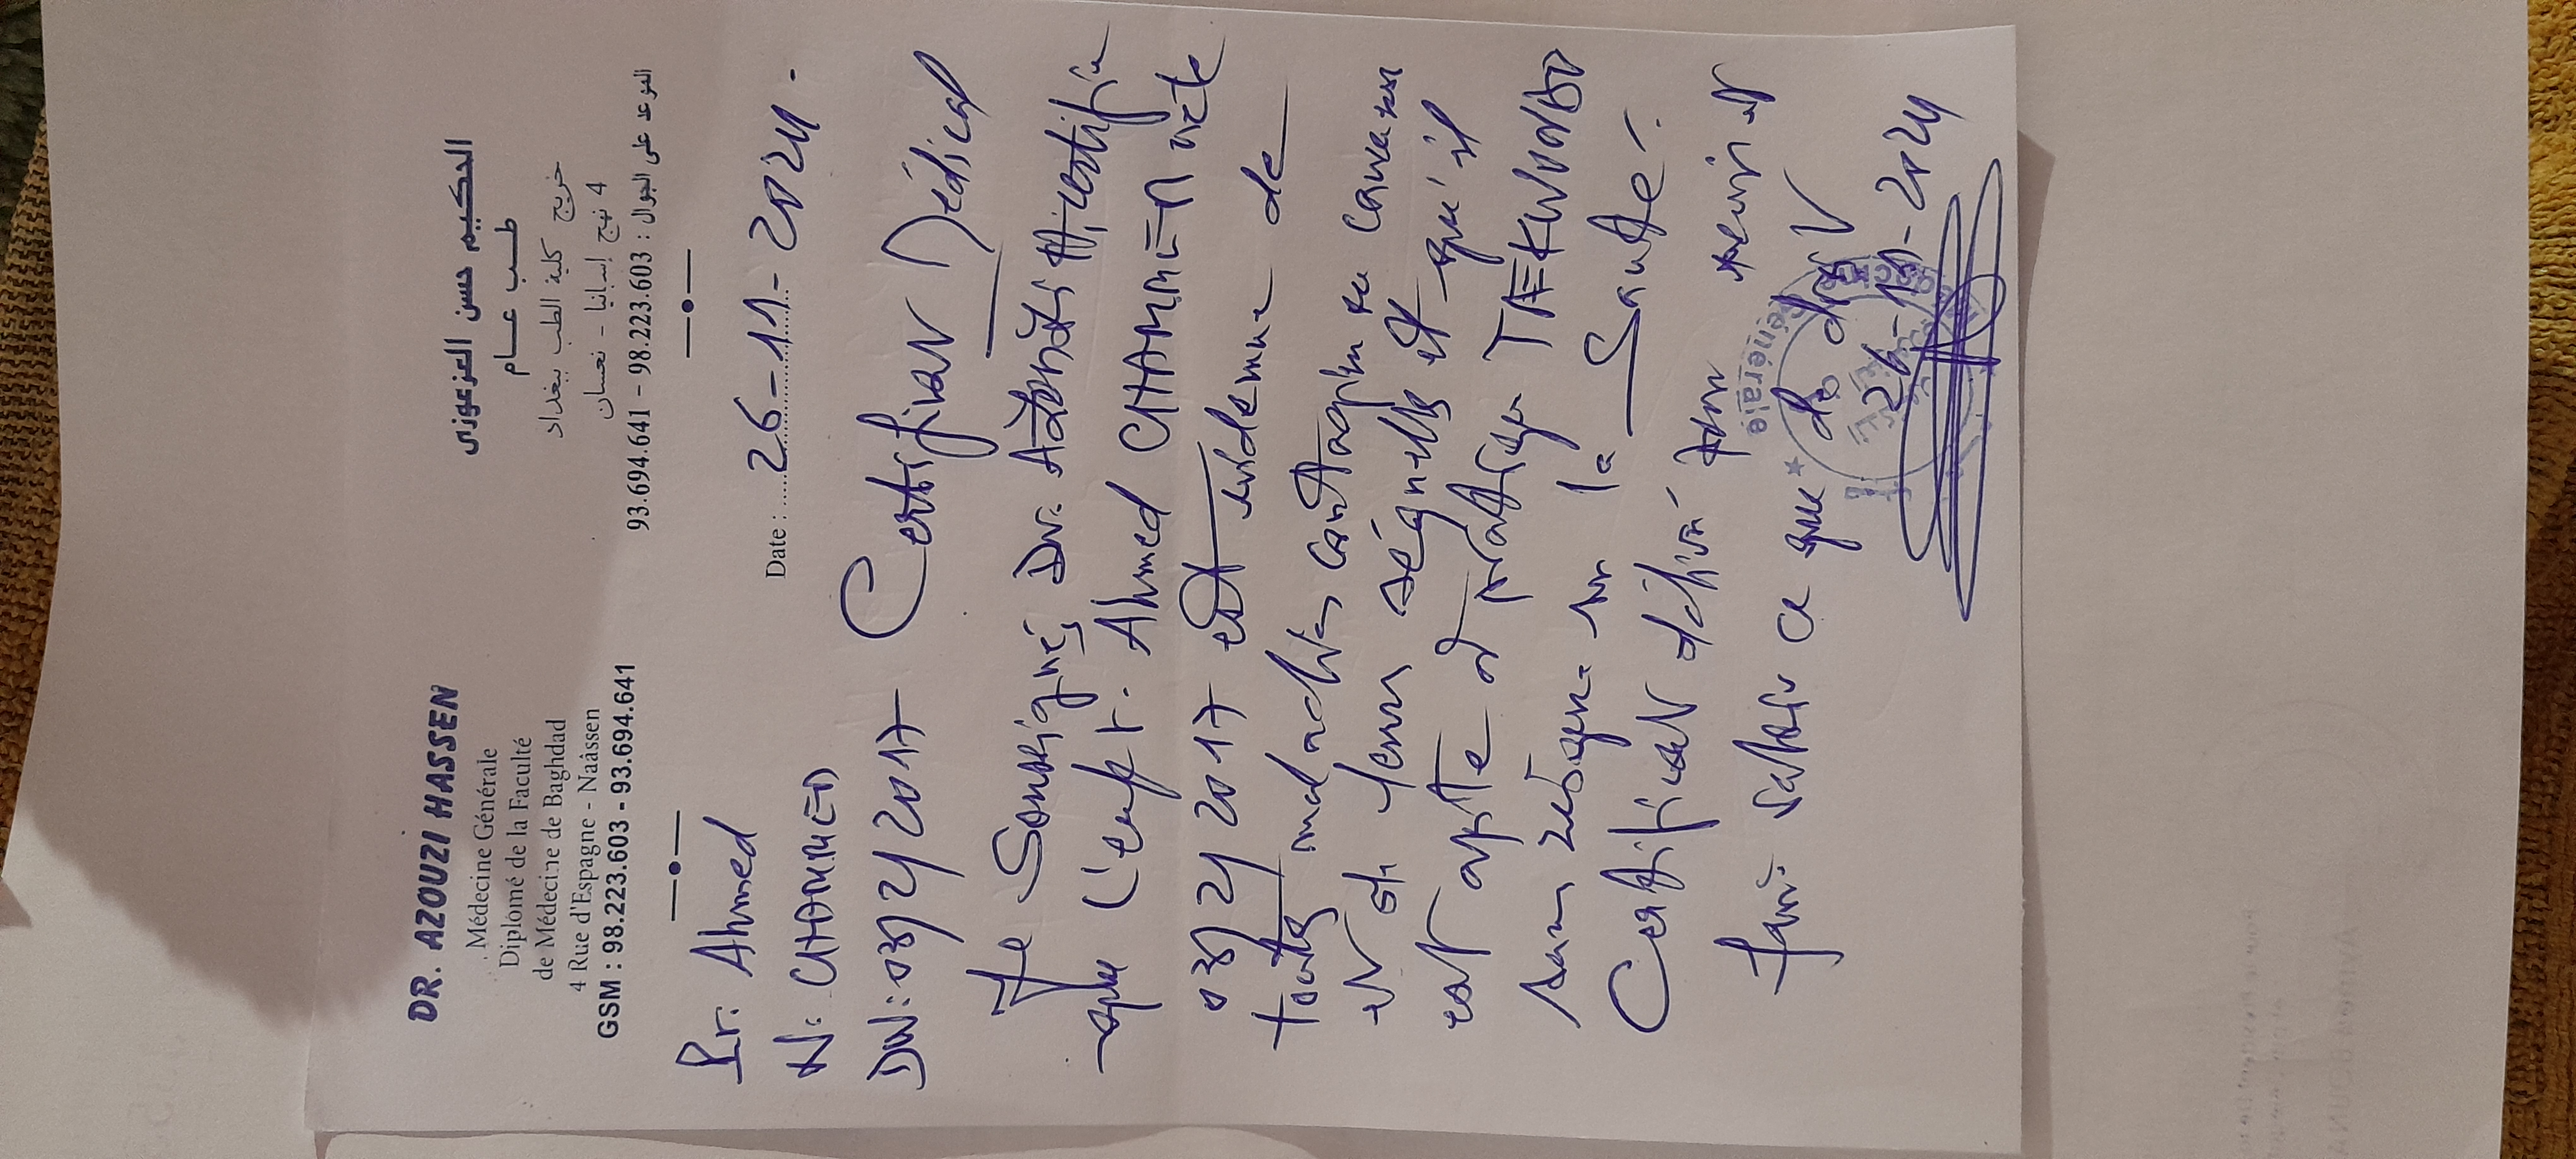 DR. AZOUZI HASSEN
Médecine Générale
Diplomé de la Faculté
de Médecine de Baghdad
4 Rue d'Espagne - Naâssen
GSM : 98.223.603 - 93.694.641
الحكيم حسن العزعوزي
طب عام
خريج كلية الطب ببغداد
4 نهج إسبانيا - نعسان
الموعد على الجوال : 98.223.603 – 93.694.641
Date : 26-11-2024-
Pr: Ahmed
N: CHAMMED
DN: 03/2/2017 Certificat Médical
Je Soussigné, Dr. Azouzi H, certifie
que l'enft. Ahmed CHAMMED né le
03/2/2017 est indemne de
toutes maladies contagieuses
et séquelles et qu'il
est apte à pratiquer TAEKWONDO
sans la Santé.
Certificat délivré pour servir et
faire valoir ce que de droit
26-11-2024
Générale